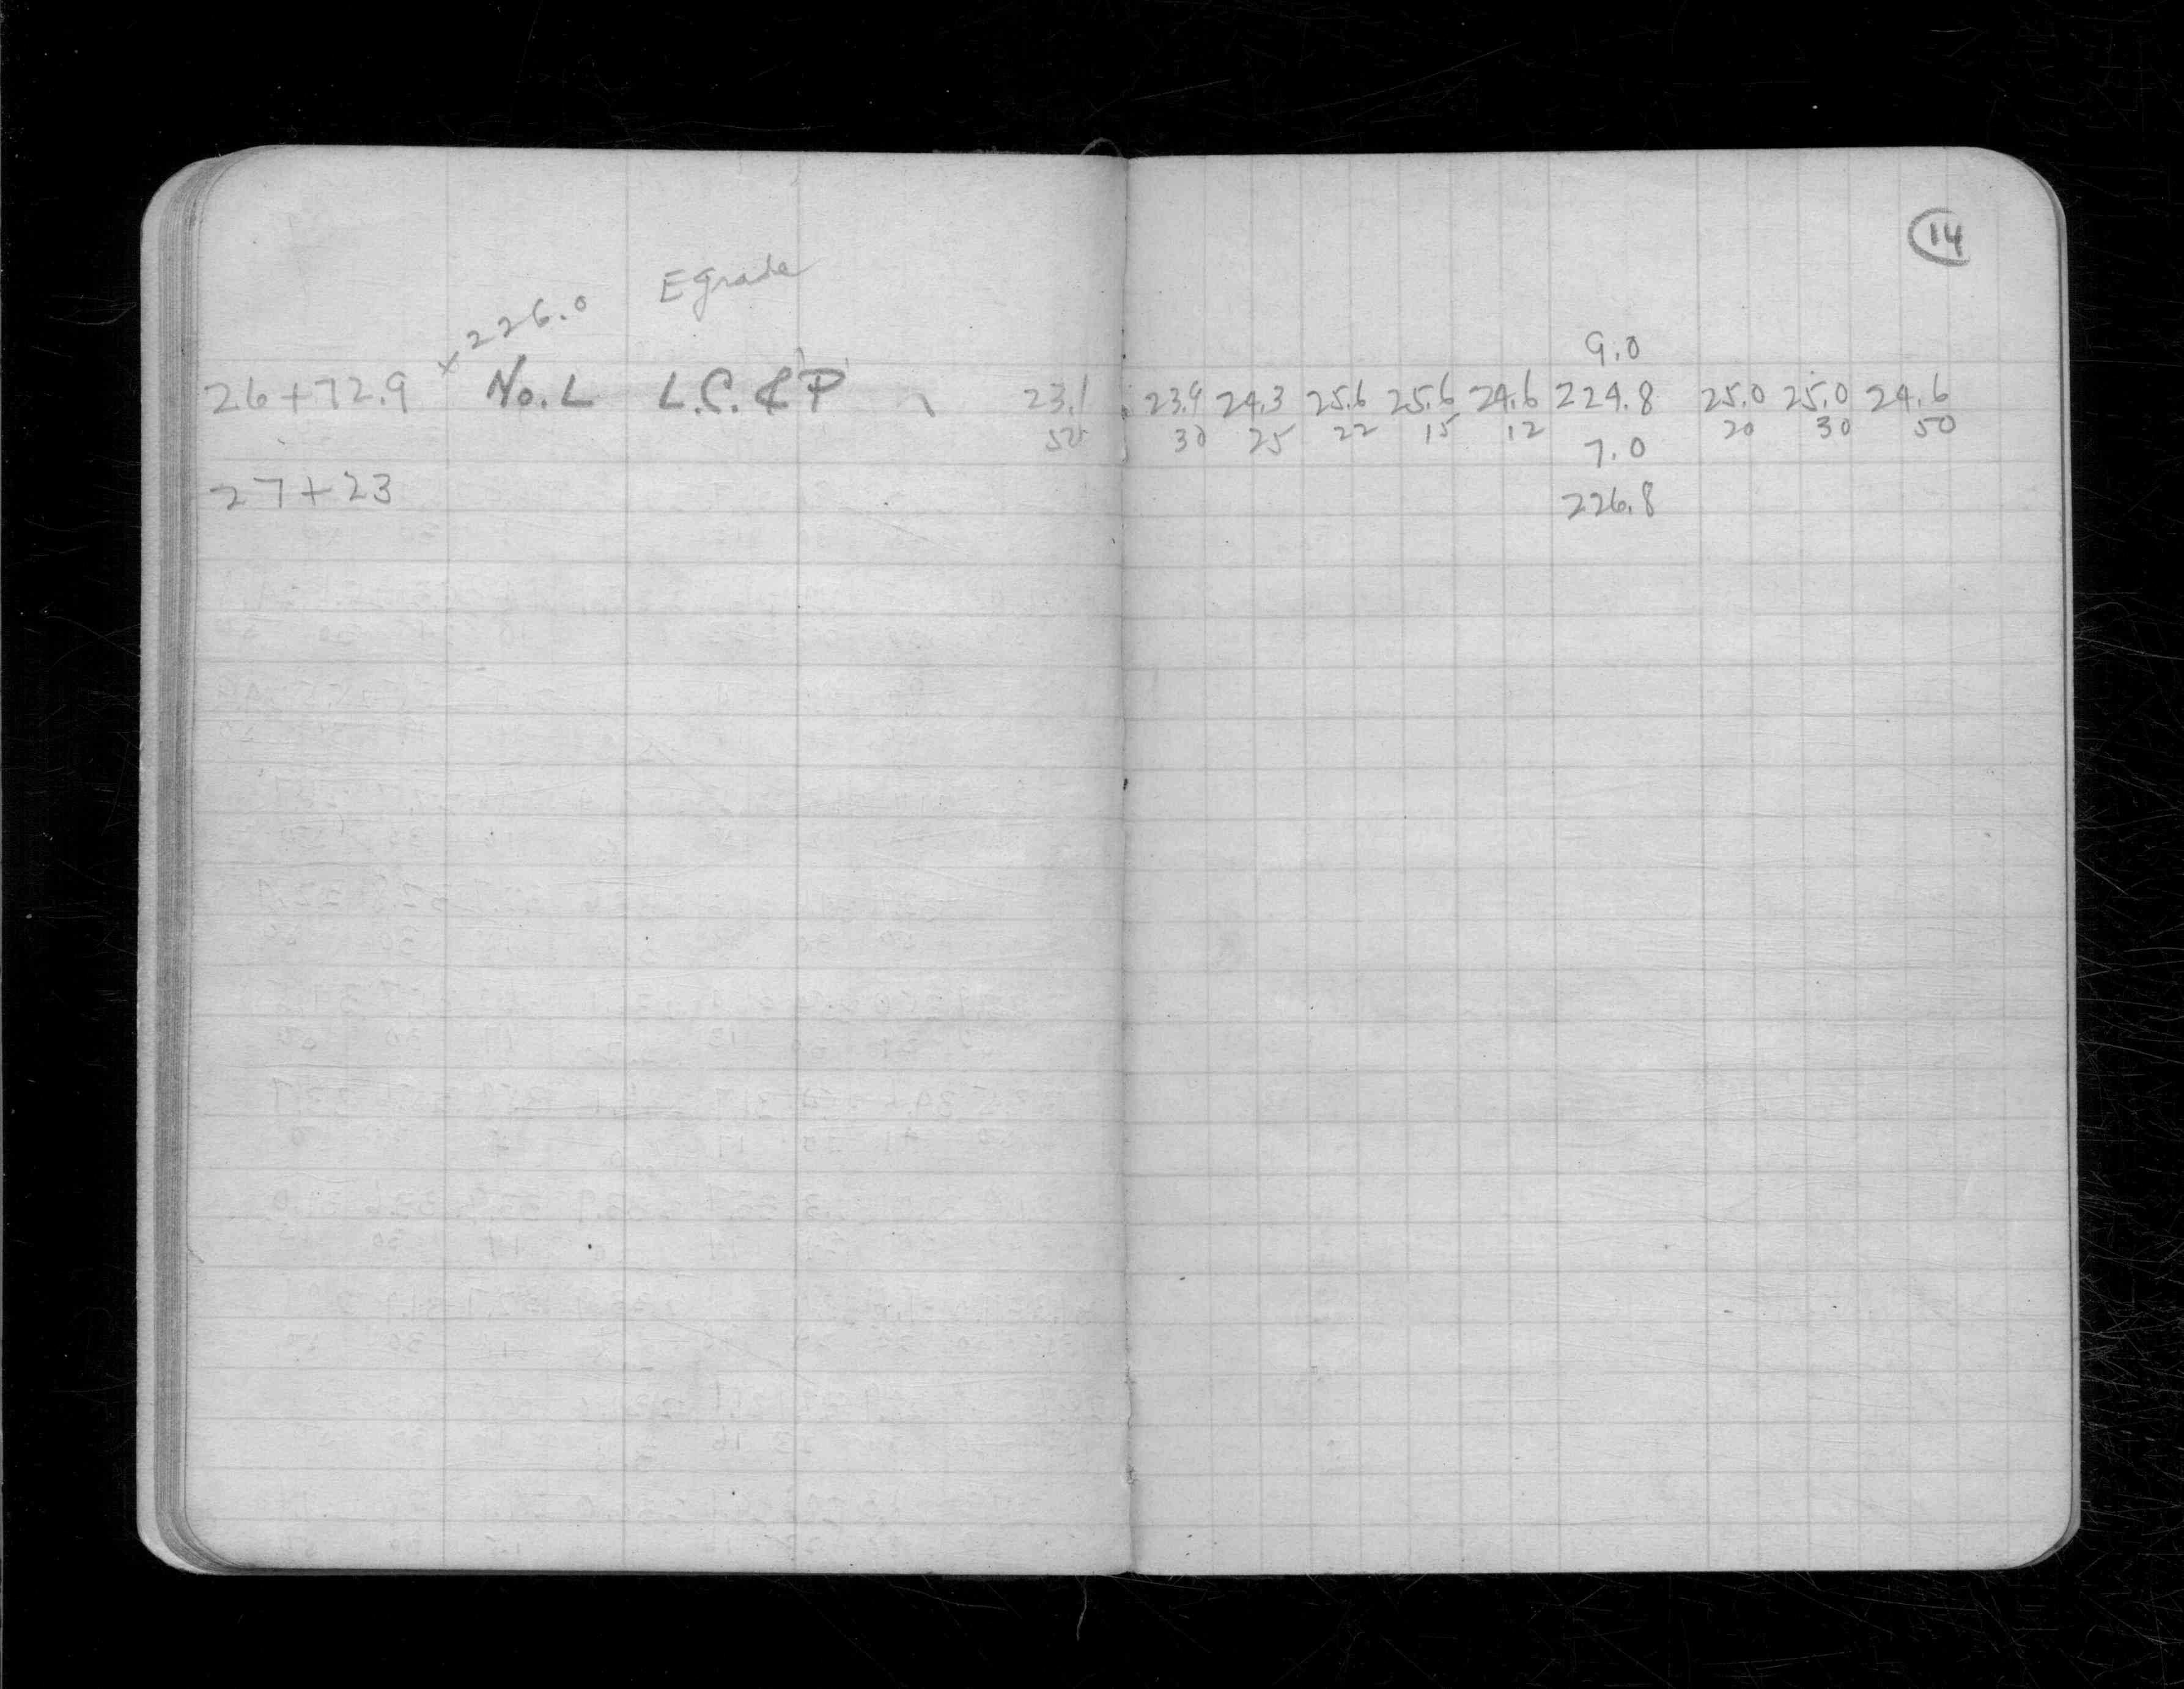 14
E grade
x 226.0
9.0
26+72.9 No. L L.C. & P 23.1 23.9 24.3 25.6 25.6 24.6 224.8 25.0 25.0 24.6
50 30 25 22 15 12 20 30 50
7.0
27+23
226.8